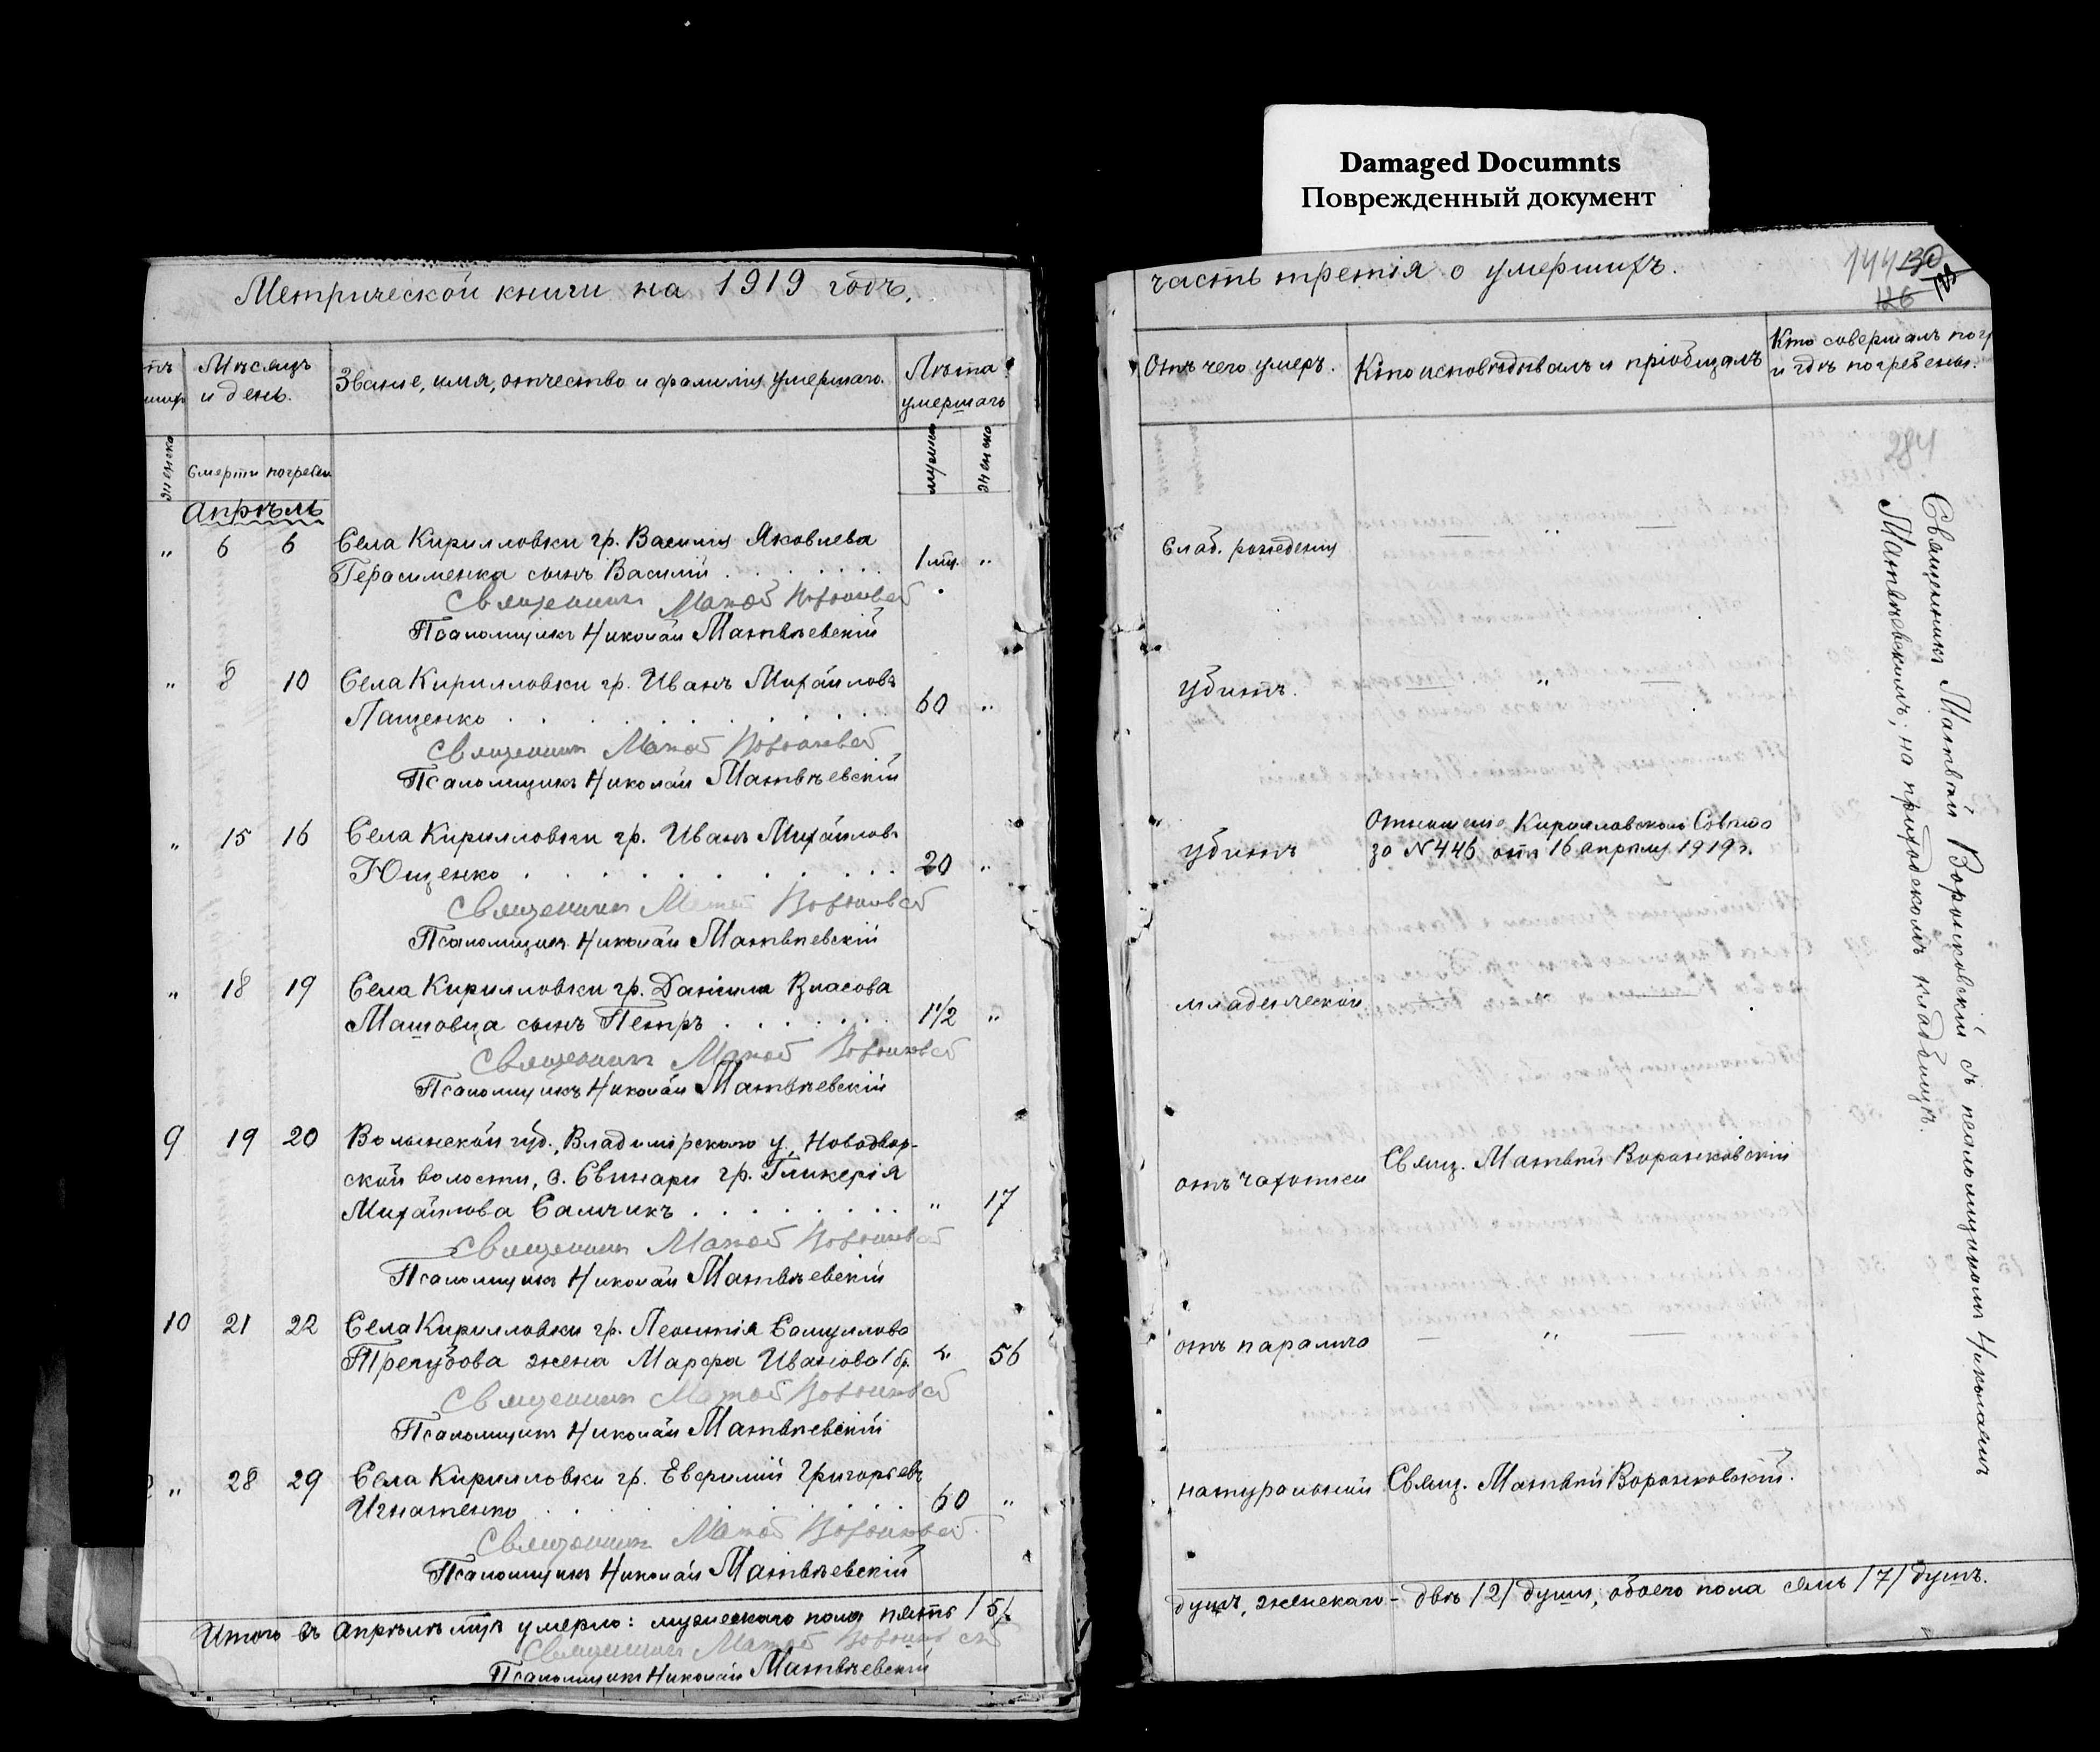 Damaged Documnts
Поврежденный документ
Метрической книги на 1919 годъ,
Мѣсяцъ
и день.
Званіе, имя, отчество и фамилія умершаго.
Лѣта
умершаго
женско
Смерти
погребен
мужеско
женско
Апрѣль
" 6 6 Села Кирилловки гр. Василія Яковлева
Герасименка сынъ Василій . . . . . . 1 мц. "
Священникъ Матвѣй Воронковскій
Псаломщикъ Николай Матвѣевскій
" 8 10 Села Кирилловки гр. Иванъ Михайловъ
Пащенко . . . . . . . . . . 60 "
Священникъ Матвѣй Воронковскій
Псаломщикъ Николай Матвѣевскій
" 15 16 Села Кирилловки гр. Иванъ Михайловъ
Ющенко . . . . . . . . . . 20 "
Священникъ Матвѣй Воронковскій
Псаломщикъ Николай Матвѣевскій
" 18 19 Села Кирилловки гр. Даніила Власова
Машовца сынъ Петръ . . . . . . 1 1/2 "
Священникъ Матвѣй Воронковскій
Псаломщикъ Николай Матвѣевскій
9 19 20 Волынской губ., Владимірскаго у., Новодвор-
ской волости, с. Свинари гр. Гликерія
Михайлова Самчикъ . . . . . . . . " 17
Священникъ Матвѣй Воронковскій
Псаломщикъ Николай Матвѣевскій
10 21 22 Села Кирилловки гр. Леонтія Самуилова
Трегубова жена Марфа Иванова 1 бр. " 56
Священникъ Матвѣй Воронковскій
Псаломщикъ Николай Матвѣевскій
" 28 29 Села Кирилловки гр. Евфимій Григорьевъ
Игнатенко . . . . . . . . . 60 "
Священникъ Матвѣй Воронковскій
Псаломщикъ Николай Матвѣевскій
Итого въ Апрѣлѣ мцѣ умерло: мужескаго пола пять /5/
Священникъ Матвѣй Воронковскій
Псаломщикъ Николай Матвѣевскій
часть третія о умершихъ.
144
126
Отъ чего умеръ.
Кто исповѣдывалъ и пріобщалъ
Кто совершалъ погр
и гдѣ погребены.
284
Слаб. рожденія — " —
Убитъ. — " —
Убитъ
Отношеніе Кирилловскаго Совѣта
за № 446 отъ 16 апрѣля 1919 г.
младенческой — " —
отъ чахотки Свящ. Матвѣй Воронковскій
отъ паралича — " —
натуральной Свящ. Матвѣй Воронковскій.
Священникъ Матвѣй Воронковскій съ псаломщикомъ Николаемъ
Матвѣевскимъ, на приходскомъ кладбищѣ.
душъ, женскаго - двѣ /2/ души, обоего пола семь /7/ душъ.